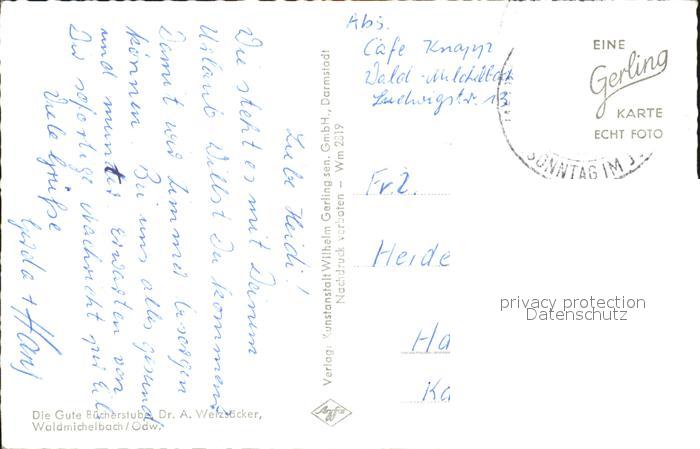 Liebe Heidi!
Wie steht es mit Deinem
Urlaub? Willst Du kommen?
Damit wir Zimmer besorgen
können. Bei uns alles gesund
und munter. Erwarten von
Dir sofortige Nachricht per Eil.
Viele Grüße
Gerda + Hans
Die Gute Bücherstube, Dr. A. Weizsäcker,
Waldmichelbach/Odw.
Verlag: Kunstanstalt Wilhelm Gerling sen. GmbH., Darmstadt
Nachdruck verboten – Wm 2819
Agfa
Abs.
Cafe Knapp
Wald-Michelbach
Ludwigstr. 13
EINE
Gerling
KARTE
ECHT FOTO
SONNTAG IM J
Frl.
Heide
Ha
Ka
privacy protection
Datenschutz